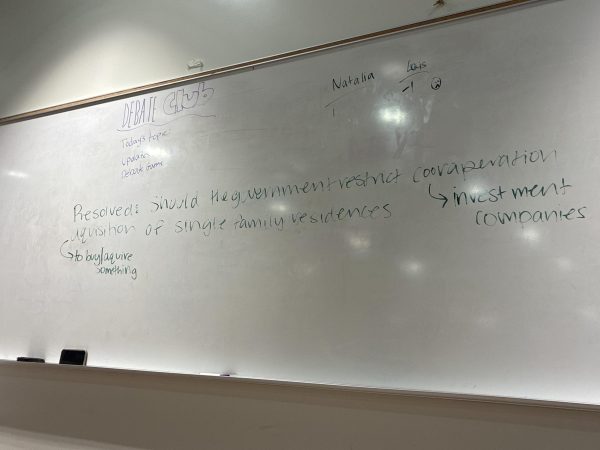 DEBATE Club
Today's topic
Updates
Debate
Natalia
1
-1
Resolved: Should the government restrict cooraperation
aquisition of single family residences
to buy/aquire
something
investment
companies